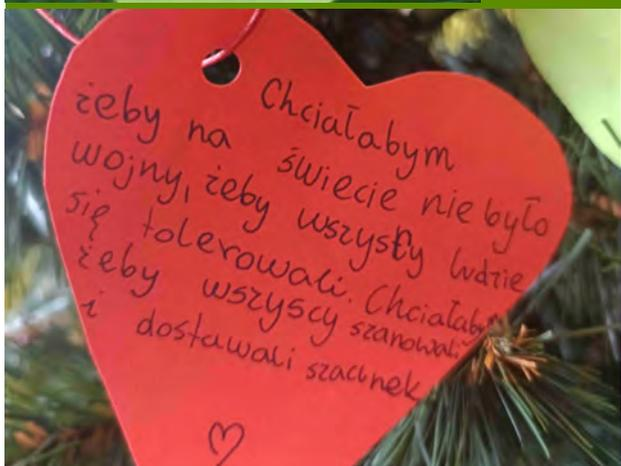 Chciałabym
żeby na świecie nie było
wojny, żeby wszyscy ludzie
się tolerowali. Chciałabym
żeby wszyscy szanowali
i dostawali szacunek